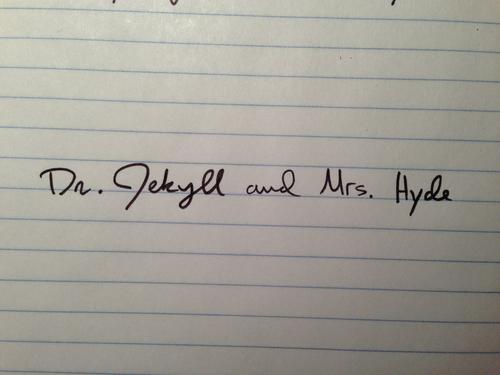 Dr. Jekyll and Mrs. Hyde